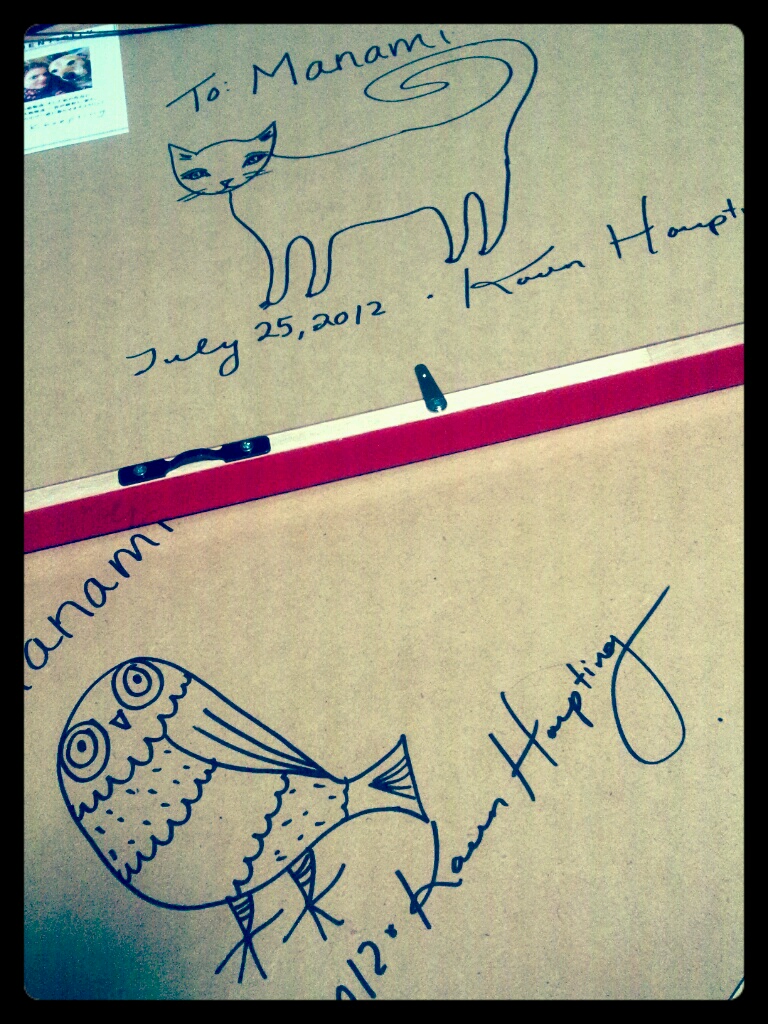 To: Manami
July 25, 2012 · Karen Haupti
anami
12 · Karen Haupting